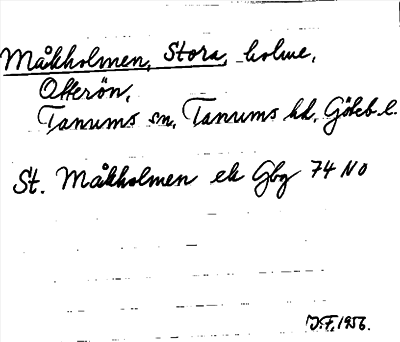 Måkholmen, Stora, holme,
Otterön,
Tanums sn, Tanums hd, Göteb. l.
St. Måkholmen ek Gbg 74 NO
J.F. 1956.